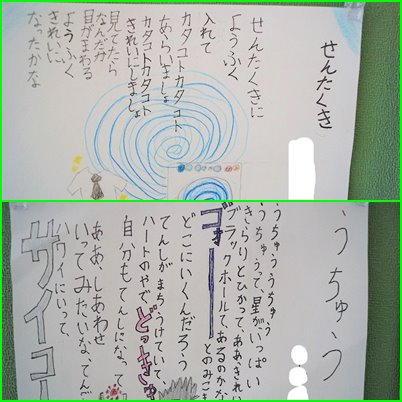 せんたくき
せんたくきに
ようふく
入れて
カタコトカタコト
あらいましょ
カタコトカタコト
きれいにしましょ
見てたら
なんだか
目がまわる
ようふく
きれいに
なったかな
うちゅう
うちゅううちゅう
うちゅうって、星がいっぱい
きらりとひかって、ああきれい
ブラックホールて、あるのかな
ゴォーーーとのみこ
どこにいくんだろう
てんしがまちうけていて、
ハートのやでどっきゅ
自分もてんしになって
ああ、しあわせ
いってみたいな、てん
ハワイにいって、
サイコー